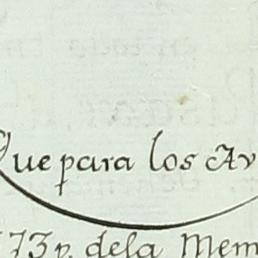 Que para los Av
73 p. dela Mem